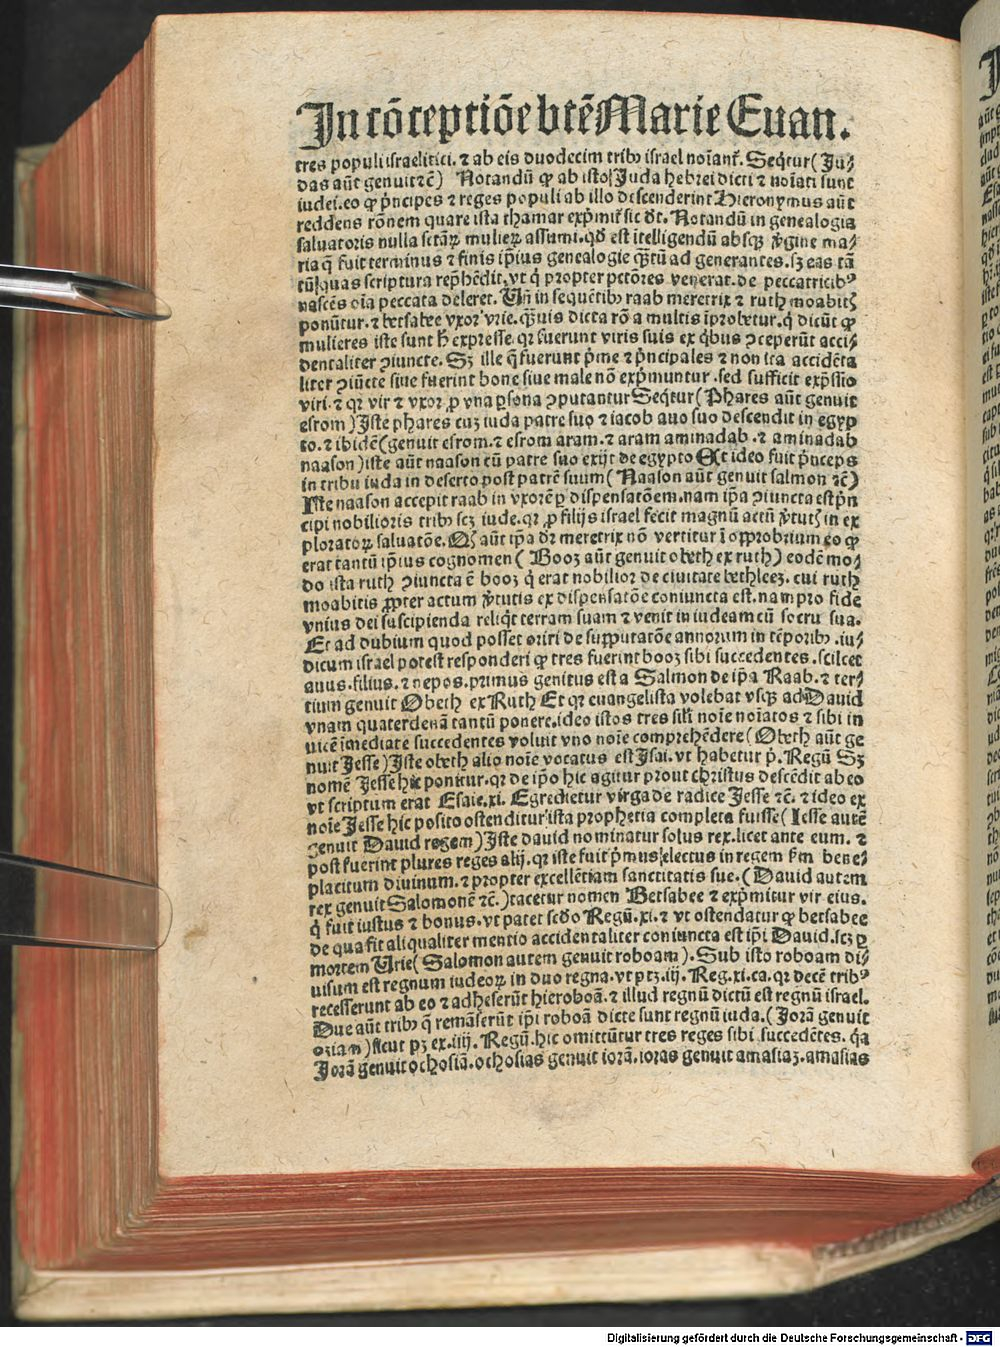 In cōceptiōe btē Marie Euan.
tres populi israelitici. ⁊ ab eis duodecim tribꝰ israel noīant̃. Seq̇tur ( Ju⸗
das aūt genuit ⁊c̄ ) Notandū ꝙ ab isto Juda hebrei dicti ⁊ noīati sunt
iudei. eo ꝙ p̃ncipes ⁊ reges populi ab illo descenderint Hieronymus aūt
reddens rōnem quare ista thamar exp̃mit̃ sic dt̄. Notandū in genealogia
saluatoris nulla sctāꝝ mulieꝝ assumi. qd̄ est ītelligendū absqꝫ v̓gine ma⸗
ria q̄ fuit terminus ⁊ finis ip̄ius genealogie qꝫ̄tū ad generantes. sꝫ eas tā
tū quas scriptura rep̄hēdit, vt q̇ propter pctōres venerat. de peccatricibꝰ
nascēs oīa peccata deleret. Vn̄ in sequētibꝰ raab meretrix ⁊ ruth moabitꝭ
ponūtur. ⁊ betsabee vxor vrie. qꝫ̄uis dicta rō a multis īprobetur. q̇ dicūt ꝙ
mulieres iste sunt h̄ expresse. qꝛ fuerunt viris suis ex q̇bus ↄceperūt acci⸗
dentaliter ↄiuncte. Sꝫ ille q̄ fuerunt p̃me ⁊ p̃ncipales ⁊ non ita accidēta
liter ↄiūcte siue fuerint bone siue male nō exp̃muntur. sed sufficit exp̃ssio
viri. ⁊ qꝛ vir ⁊ vxor ꝓ vna ꝑsona ↄputantur Seq̇tur ( Phares aūt genuit
esrom ) Iste phares cuꝫ iuda patre suo ⁊ iacob auo suo descendit in egyp
to. ⁊ ibidē ( genuit esrom. ⁊ esrom aram. ⁊ aram aminadab. ⁊ aminadab
naason ) iste aūt naason cū patre suo exijt de egypto Et ideo fuit p̃nceps
in tribu iuda in deserto post patrē suum ( Naason aūt genuit salmon ⁊c̄ )
Iste naason accepit raab in vxorē ꝑ dispensatōem. nam ip̄a ↄiuncta est p̃n
cipi nobilioris tribꝰ scꝫ iude. qꝛ ꝓ filijs israel fecit magnū actū v̓tutꝭ in ex
ploratoꝝ saluatōe. Qꝫ aūt ip̄a dꝛ meretrix nō vertitur ī opprobrium eo ꝙ
erat tantū ip̄ius cognomen ( Booz aūt genuit obeth ex ruth ) eodē mo⸗
do ista ruth ↄiuncta ē booz q̇ erat nobilior de ciuitate bethleeꝫ. cui ruth
moabitis ꝓpter actum v̓tutis ex dispensatōe coniuncta est. nam pro fide
vnius dei suscipienda reliq̇t terram suam ⁊ venit in iudeam cū socru sua.
Et ad dubium quod posset oriri de supputatōe annorum in tēporibꝰ. iu⸗
dicum israel potest responderi ꝙ tres fuerint booz sibi succedentes. scilcet
auus. filius. ⁊ nepos. primus genitus est a Salmon de ip̄a Raab. ⁊ ter⸗
tium genuit Obeth ex Ruth Et qꝛ euangelista volebat vsqꝫ ad Dauid
vnam quaterdenā tantū ponere. ideo istos tres sil̓i noīe noīatos ⁊ sibi in
uicē īmediate succedentes voluit vno noīe comprehēdere ( Obeth aūt ge
nuit Jesse ) Iste obeth alio noīe vocatus est Isai. vt habetur p̃. Regū Sꝫ
nomē Jesse hic ponitur. qꝛ de ip̄o hic agitur prout christus descēdit ab eo
vt scriptum erat Esaie. xi. Egredietur virga de radice Jesse ⁊c̄. ⁊ ideo ex
noīe Jesse hic posito ostenditur ista prophetia completa fuisse ( Iesse autē
genuit Dauid regem ) Iste dauid nominatur solus rex. licet ante eum. ⁊
post fuerint plures reges alij. qꝛ iste fuit p̃mus electus in regem ẜm bene⸗
placitum diuinum. ⁊ propter excellētiam sanctitatis sue. ( Dauid autem
rex genuit Salomonē ⁊c̄. ) tacetur nomen Betsabee ⁊ exp̃mitur vir eius.
q̇ fuit iustus ⁊ bonus. vt patet scd̄o Regū. xi. ⁊ vt ostendatur ꝙ betsabee
de qua fit aliqualiter mentio accidentaliter coniuncta est ip̄i Dauid. scꝫ ꝑ
mortem Urie ( Salomon autem genuit roboam ). Sub isto roboam di⸗
uisum est regnum iudeoꝝ in duo regna. vt ptꝫ. iij. Reg. xi. ca. qꝛ decē tribꝰ
recesserunt ab eo ⁊ adheserūt hieroboā. ⁊ illud regnū dictū est regnū israel.
Due aūt tribꝰ q̄ remāserūt ip̄i roboā dicte sunt regnū iuda. ( Jorā genuit
oziam ) sicut pꝫ ex. iiij. Regū. hic omittūtur tres reges sibi succedētes. q̇a
Jorā genuit ochosiā. ochosias genuit iorā. ioras genuit amasiaꝫ. amasias
Digitalisierung gefördert durch die Deutsche Forschungsgemeinschaft - DFG